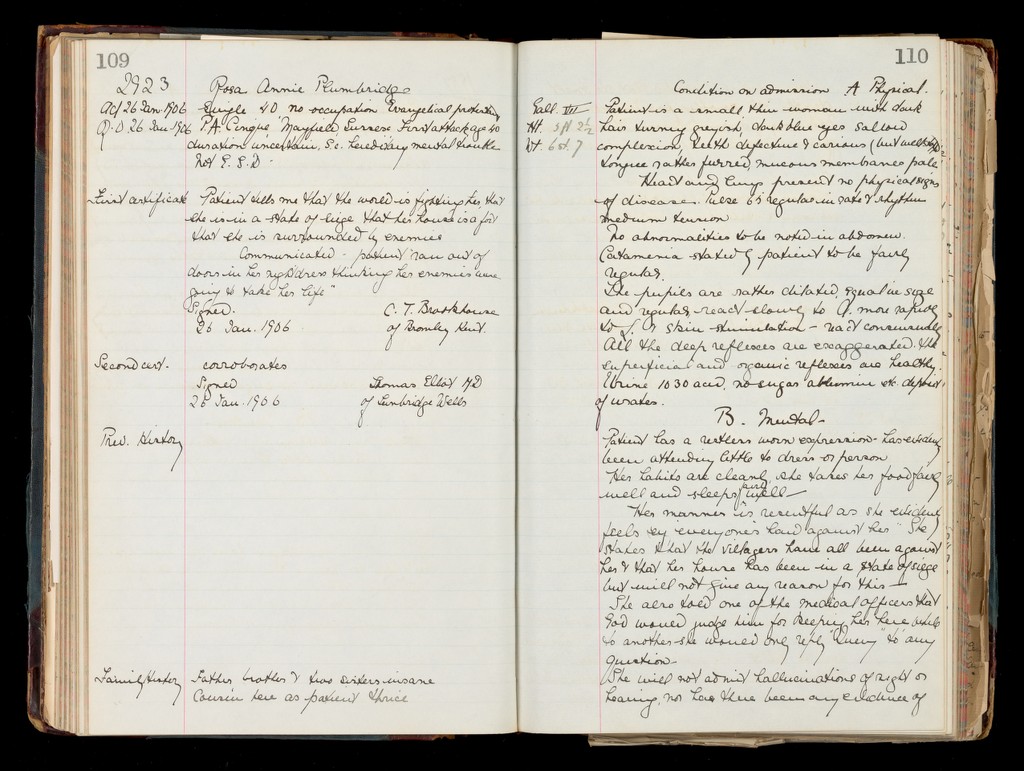 109
2923 Rosa Annie Plumbridge
Adf 26 Jan. 1906 Single 40, no occupation Evangelical protestant
R.O. 26 Jan. 1906 P.A. Cinque, Mayfield Sussex. First attack age 40
duration uncertain, Sc. hereditary mental trouble
Not E. S. D -
First certificate Patient tells me that the world is fighting her, that
she is in a state of siege that her house is a fort
that she is surrounded by enemies
Communicated - patient "ran out of
doors in her nightdress thinking her enemies were
going to take her life"
Signed. C. T. Brookhouse
26 Jan. 1906 of Bromley Kent.
Second cert. corroborates
Signed Thomas Elliot MD
26 Jan. 1906 of Tunbridge Wells
Prev. History
Family History Father brother & two sisters insane
Cousin here as patient thrice
110
Condition on admission A Physical.
Gall. VII Patient is a small thin woman with dark
Ht. 5ft 2½ hair turning greyish, dark blue eyes sallow
Wt. 6st. 7 complexion, teeth defective & carious (but
tongue rather furred, mucous membranes pale
Heart and lungs present no physical signs
of disease. Pulse 65 regular in rate & rhythm
medium tension
No abnormalities to be noted in abdomen.
Catamenia stated by patient to be fairly
regular.
The pupils are rather dilated, equal in size
and regular, react slowly to A. more rapidly
to L. & skin stimulation - react consensually
All the deep reflexes are exaggerated. the
superficial and organic reflexes are healthy.
Urine 1030 acid, no sugar albumin etc. deposit
of urates.
B. Mental -
Patient has a restless worn expression - has evidently
been attending little to dress or person
Her habits are cleanly, she takes her food fairly
well and sleeps fairly well -
Her manner is resentful as she evidently
feels "everyone's hand against her" She
states that the villagers have all been against
her & that her house has been in a state of siege
but will not give any reason for this -
She also told one of the medical officers that
God would judge him for keeping her here while
to another she would only reply "Query" to any
question -
She will not admit hallucinations of sight or
hearing, nor has there been any evidence of